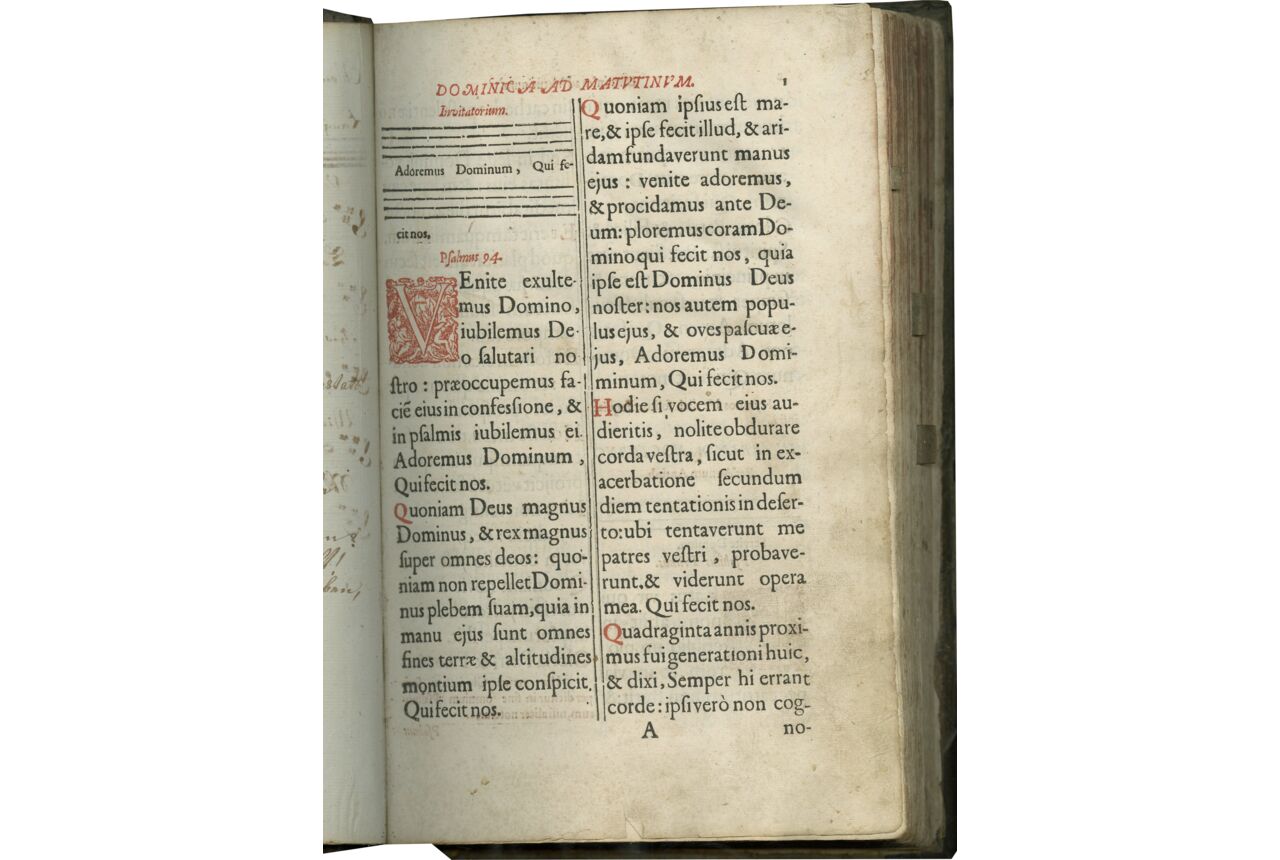 DOMINICA AD MATVTINVM.
1
Invitatorium.
Adoremus Dominum, Qui fe-
cit nos,
Psalmus 94.
VEnite exulte-
mus Domino,
iubilemus De-
o ſalutari no
ſtro : præoccupemus fa-
ciē eius in confeſsione, &
in pſalmis iubilemus ei.
Adoremus Dominum,
Qui fecit nos.
Quoniam Deus magnus
Dominus, & rex magnus
ſuper omnes deos: quo-
niam non repellet Domi-
nus plebem ſuam, quia in
manu ejus ſunt omnes
fines terræ & altitudines
montium ipſe conſpicit.
Qui fecit nos.
Quoniam ipſius eſt ma-
re, & ipſe fecit illud, & ari-
dam fundaverunt manus
ejus : venite adoremus,
& procidamus ante De-
um: ploremus coram Do-
mino qui fecit nos, quia
ipſe eſt Dominus Deus
noſter: nos autem popu-
lus ejus, & oves paſcuæ e-
jus, Adoremus Domi-
minum, Qui fecit nos.
Hodie ſi vocem eius au-
dieritis, nolite obdurare
corda veſtra, ſicut in ex-
acerbatione ſecundum
diem tentationis in deſer-
to: ubi tentaverunt me
patres veſtri, probave-
runt. & viderunt opera
mea. Qui fecit nos.
Quadraginta annis proxi-
mus fui generationi huic,
& dixi, Semper hi errant
corde: ipſi verò non cog-
A
no-